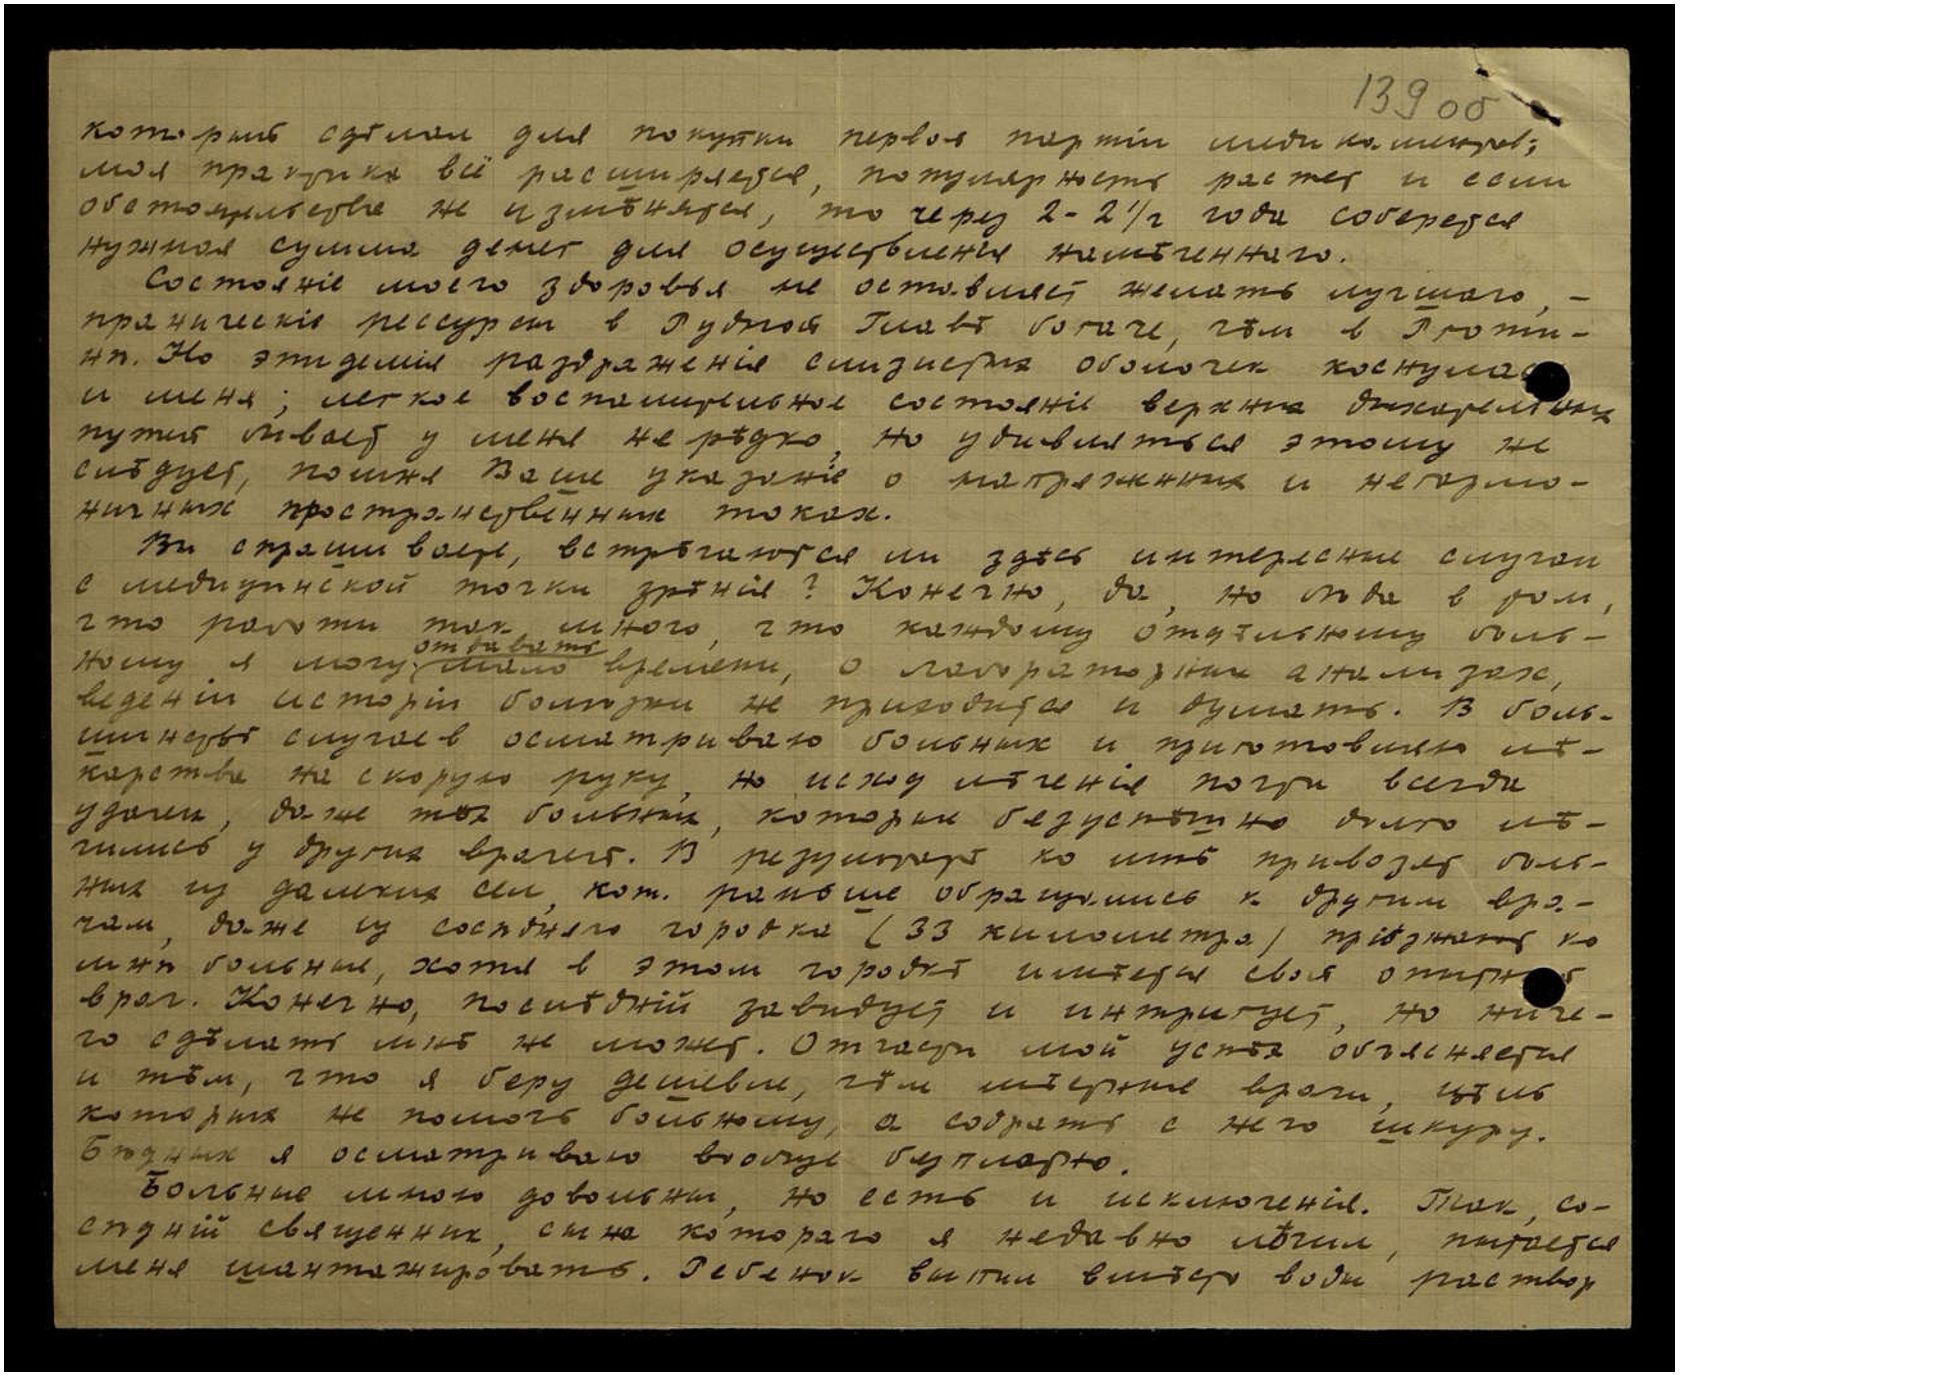 139 об
который сдѣлал для покупки первой партіи медикаментов;
моя практика всё расширяется, популярность растет и если
обстоятельства не измѣнятся, то через 2-2 1/2 года соберется
нужная сумма денег для осуществленія намѣченнаго.
Состояніе моего здоровья не оставляет желать лучшаго, –
праническіе рессурсы в Рудной Главѣ богаче, чѣм в
Но эпидемія раздраженія слизистых оболочек коснулась
и меня; легкое воспалительное состояніе верхних дыхательных
путей бывает у меня не рѣдко, но удивляться этому не
слѣдует, помня Ваше указаніе о напряженных и негармо-
ничных пространственных токах.
Вы спрашиваете, встрѣчаются ли здѣсь интересные случаи
с медицинской точки зрѣнія? Конечно, да, но бѣда в том,
что работы так много, что каждому отдѣльному боль-
ному я могу отдавать мало времени, о лабораторных анализах,
веденіи исторіи болѣзни не приходится и думать. В боль-
шинствѣ случаев осматриваю больных и приготовляю лѣ-
карства на скорую руку, но исход лѣченія почти всегда
удачен, даже тѣх больных, которые безуспѣшно долго лѣ-
чились у других врачей. В результатѣ ко мнѣ привозят боль-
ных из далеких сел, кот. раньше обращались к другим вра-
чам, даже из сосѣдняго городка (33 километра) пріѣзжают ко
мнѣ больные, хотя в этом городкѣ имѣется свой опытный
врач. Конечно, послѣдній завидует и интригует, но ниче-
го сдѣлать мнѣ не может. Отчасти мой успѣх объясняется
и тѣм, что я беру дешевле, чѣм мѣстные врачи, цѣль
которых не помочь больному, а содрать с него шкуру.
Бѣдных я осматриваю вообще безплатно.
Больные мною довольны, но есть и исключенія. Так, со-
сѣдній священник, сына котораго я недавно лѣчил, пытается
меня шантажировать. Ребенок выпил вмѣсто воды раствор